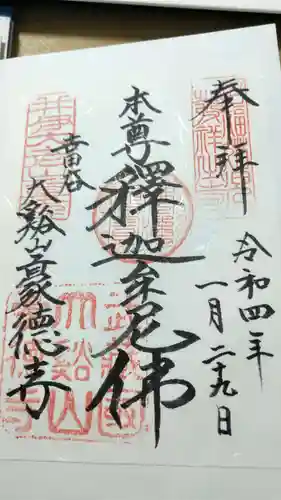 奉拝
令和四年
一月二十九日
本尊釋迦牟尼佛
世田谷
大谿山豪徳寺